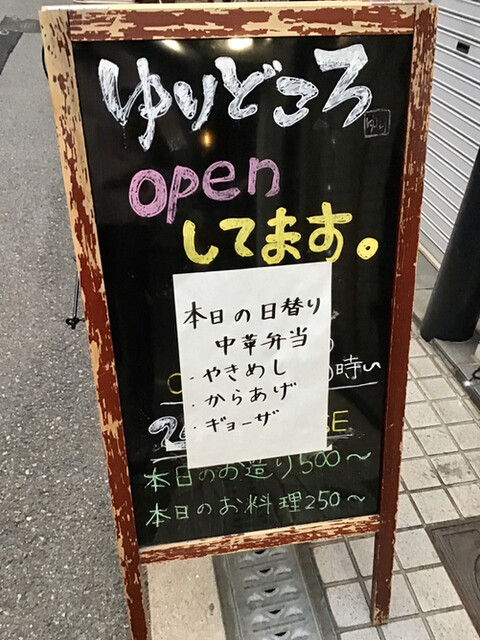 ゆりどころ
open
してます。
本日の日替り
中華弁当
・やきめし
・からあげ
・ギョーザ
時い
本日のお造り500〜
本日のお料理250〜